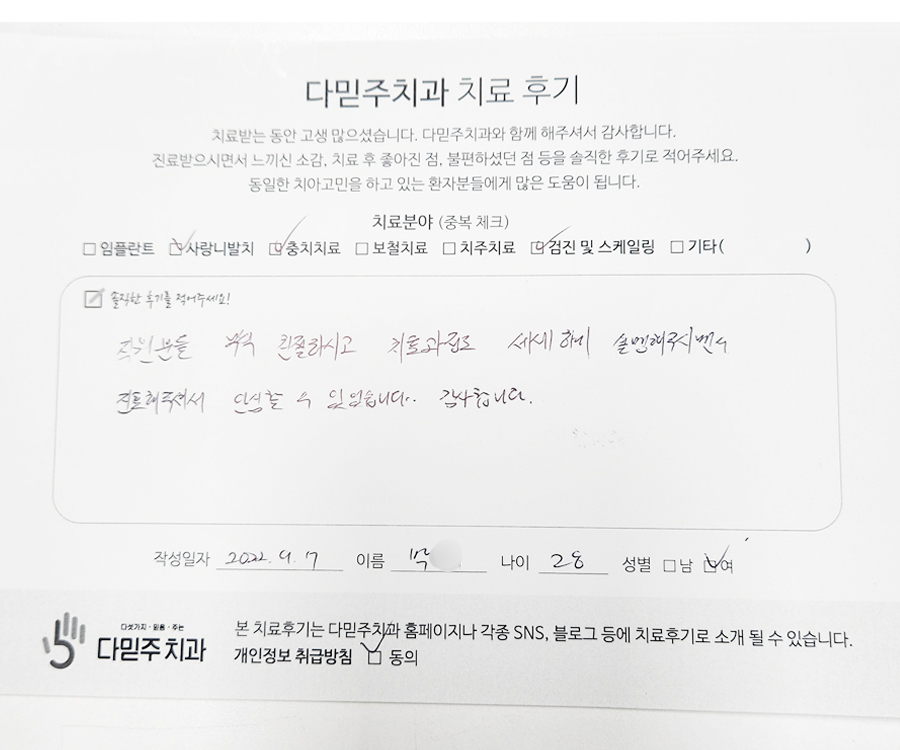 다믿주치과 치료 후기
치료받는 동안 고생 많으셨습니다. 다믿주치과와 함께 해주셔서 감사합니다.
진료받으시면서 느끼신 소감, 치료 후 좋아진 점, 불편하셨던 점 등을 솔직한 후기로 적어주세요.
동일한 치아고민을 하고 있는 환자분들에게 많은 도움이 됩니다.
치료분야 (중복 체크)
□ 임플란트 ☑ 사랑니발치 ☑ 충치치료 □ 보철치료 □ 치주치료 ☑ 검진 및 스케일링 □ 기타 ( )
솔직한 후기를 적어주세요!
직원분들 무척 친절하시고 치료과정도 세세하게 설명해주시면서
진료해주셔서 안심할 수 있었습니다.. 감사합니다.
작성일자 2022. 9. 7 이름 박 나이 28 성별 □ 남 ☑ 여
다섯가지 · 믿음 · 주는
다믿주치과
본 치료후기는 다믿주치과 홈페이지나 각종 SNS, 블로그 등에 치료후기로 소개 될 수 있습니다.
개인정보 취급방침 ☑ 동의